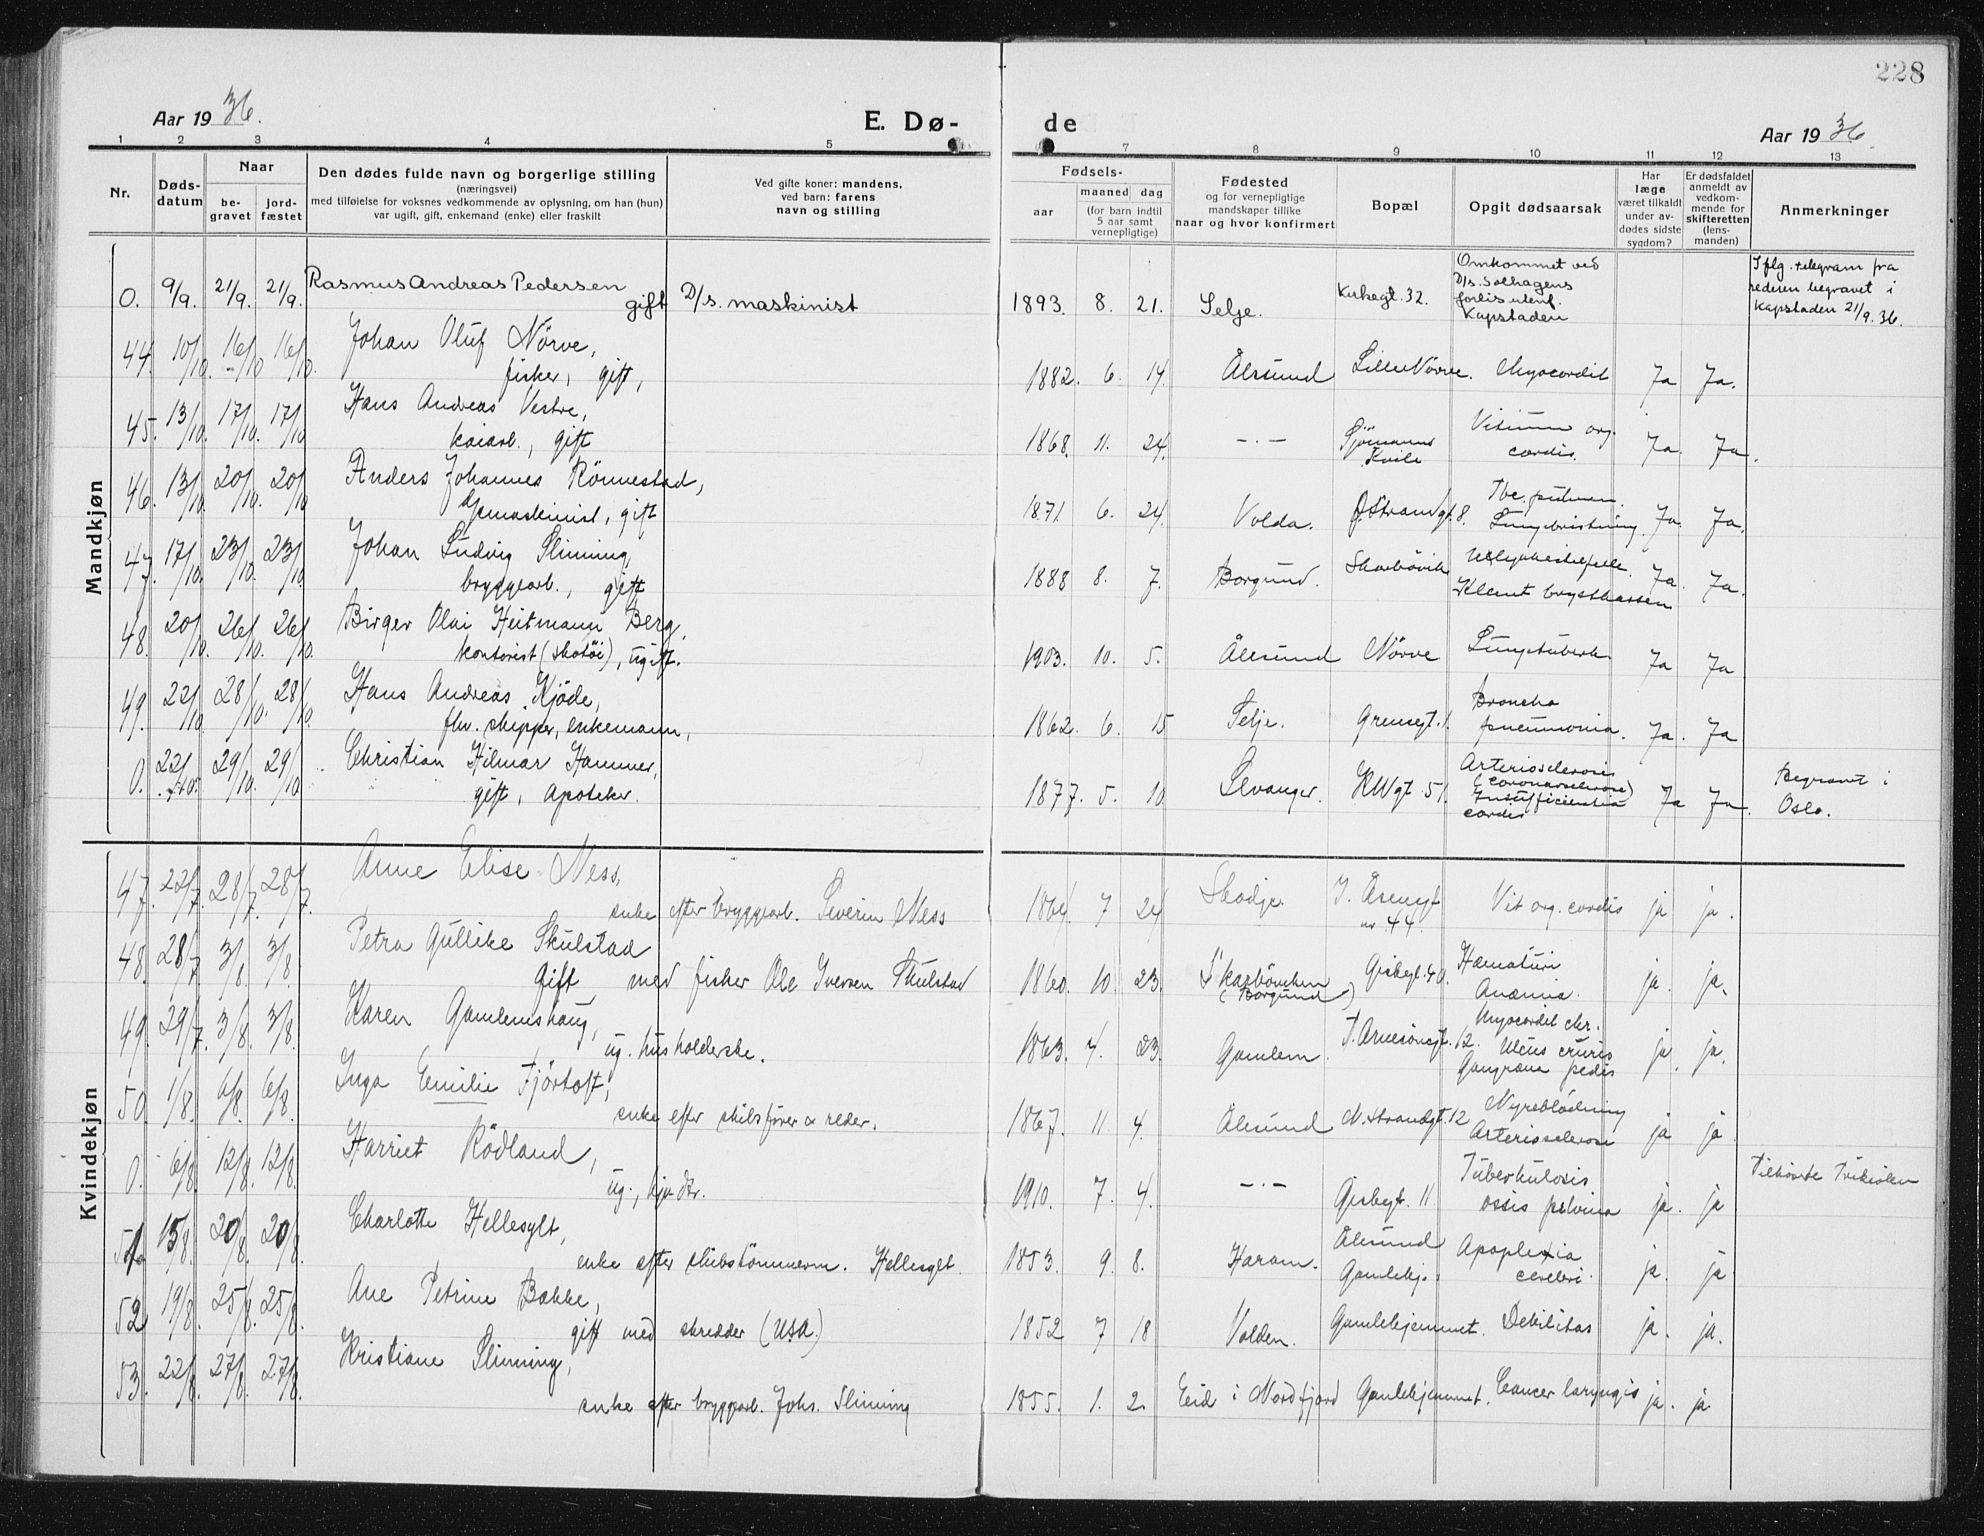 228
Aar 1936.
E. Dø-
de
Aar 1936.
1 2 3 4 5 7 8 9 10 11 12 13
Nr.
Døds-
datum
Naar
be-
gravet
jord-
fæstet
Den dødes fulde navn og borgerlige stilling
(næringsvei)
med tilføielse for voksnes vedkommende av oplysning, om han (hun)
var ugift, gift, enkemand (enke) eller fraskilt
Ved gifte koner: mandens,
ved barn: farens
navn og stilling
Fødsels-
aar
maaned dag
(for barn indtil
5 aar samt
vernepligtige)
Fødested
og for vernepligtige
mandskaper tillike
naar og hvor konfirmert
Bopæl
Opgit dødsaarsak
Har
læge
været tilkaldt
under av-
dødes sidste
sygdom?
Er dødsfaldet
anmeldt av
vedkom-
mende for
skifteretten
(lens-
manden)
Anmerkninger
Mandkjøn
0. 9/9. 21/9. 21/9. Rasmus Andreas Pedersen
gift D/s. maskinist 1893. 8. 21. Selje. Kirkegt. 32.
Omkommet ved
D/s. Solhagens
forlis utenf.
Kapstaden
Iflg. telegram fra
rederen begravet i
Kapstaden 21/9. 36.
44. 10/10. 16/10 16/10. Johan Oluf Nörve,
fisker, gift, 1882. 6. 14. Ålesund Lille Nörve. Myocardit Ja Ja.
45. 13/10. 17/10. 17/10 Hans Andreas Vestre,
kaiarb., gift 1868. 11. 24. -·- Sjömanns
Kvile
Vitium org.
cordis. Ja Ja.
46. 13/10 20/10. 20/10 Anders Johannes Rönnestad,
D/smaskinist, gift 1871. 6. 24. Volda. Ö. Strandgt. 8.
Tbc. pulmon.
Lungebristning. Ja. Ja.
47. 17/10. 23/10. 23/10. Johan Ludvig Slinning,
bryggearb., gift 1888 8. 7. Borgund. Skarbövik
Ulykkestilfelle.
Klemt brystkassen Ja. Ja.
48. 20/10. 26/10. 26/10. Birger Olai Heitmann Berg,
kontorist (skotöi), ugift. 1903. 10. 5. Ålesund Nörve Lungetuberk. Ja Ja
49. 22/10 28/10. 28/10. Hans Andreas Kjöde,
fhv. skipper, enkemann, 1862. 6. 15 Selje. Grensegt. 1.
Broncho
pneumonia. Ja. Ja
0. 22/10. 29/10. 29/10 Christian Hilmar Hammer,
gift, Apoteker. 1877. 5. 10 Levanger. KWgt. 51.
Arteriosclerosis
(Coronarsclerose)
Insufficientia
cordis
Ja Ja.
Begravet i
Oslo.
Kvindekjøn
47. 22/7. 28/7. 28/7. Anne Elise Ness,
enke efter bryggearb. Severin Ness 1864. 7 24 Skodje. I. Åsengt
nr. 44. Vit. org. cordis ja ja.
48. 28/7 3/8 3/8. Petra Gullike Skulstad
Gift med fisker Ole Iversen Skulstad 1860. 10. 23. Skarbövichen
(Borgund) Gisbgt. 40.
Hæmaturi
Anæmia. ja. ja.
49. 29/7. 3/8. 3/8. Karen Gamlemshaug,
ug. husholderske. 1863. 4. 23. Gamlem J. Arnesöngt. 12.
Myocardit chr.
Ulcus cruris
Gangræna pedis ja. ja.
50. 1/8. 6/8. 6/8. Inga Emilie Fjörtoft,
enke efter skibsförer & reder. 1867. 11. 4. Ålesund N. Strandgt. 12
Nyreblödning
Arteriosclerose ja ja
0. 6/8. 12/8. 12/8. Harriet Rödland,
ug., 1910. 7. 4. -·- Gisbegt. 11.
Tuberkulosis
ossis pelvina ja. ja
51 15/8. 20/8. 20/8. Charlotte Hellesylt,
enke efter skibstömmerm. Hellesylt. 1853. 9. 8. Haram. Ålesund
Gamlehj.
Apoplexia
cerebri. ja. ja
52 19/8. 25/8. 25/8. Ane Petrine Bakke,
gift med skredder (USA.) 1852 7 18 Volden. Gamlehjemmet. Debilitas ja. ja.
53. 22/8. 27/8. 27/8. Kristiane Slinning,
enke efter bryggearb. Johs. Slinning 1855. 1. 2. Eid i Nordfjord Gamlehjemmet. Cancer laryngis ja. ja